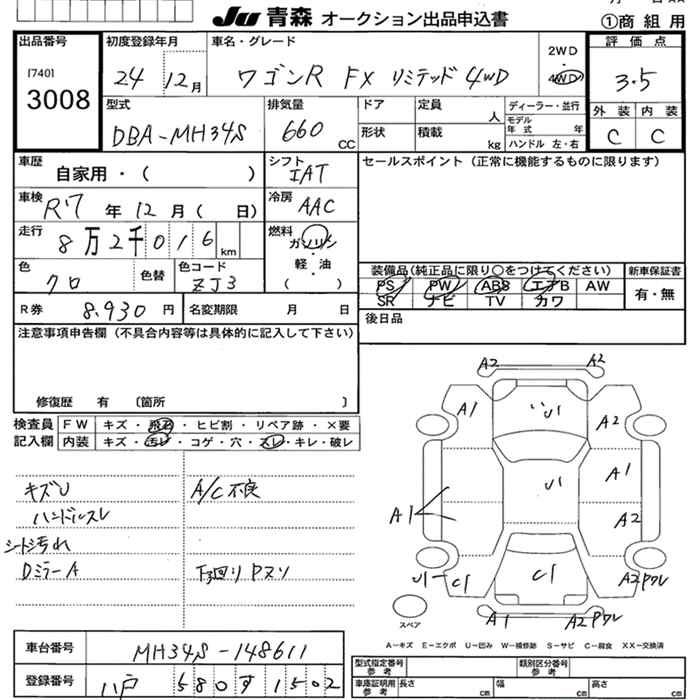 Ju 青森 オークション出品申込書
①商 組 用
出品番号
[740]
3008
初度登録年月
24 12月
車名・グレード
ワゴンR FX リミテッド 4WD
2WD
・
4WD
評 価 点
3.5
型式
DBA-MH34S
排気量
660 CC
ドア
定員 人
形状
積載 kg
ディーラー・並行
モデル年式 年
ハンドル 左・右
外 装
内 装
C
C
車歴
自家用・( )
シフト
IAT
セールスポイント (正常に機能するものに限ります)
車検
R7 年 12 月 ( 日)
冷房
AAC
走行
8万2千016 km
燃料
ガソリン
・
軽・油
( )
色
クロ
色替
色コード
ZJ3
装備品(純正品に限り○をつけてください)
新車保証書
PS PW ABS エアB AW
SR ナビ TV カワ
有・無
R券
8.930 円
名変期限 月 日
後日品
注意事項申告欄 (不具合内容等は具体的に記入して下さい)
修復歴 有 〔箇所 〕
検査員記入欄
FW キズ・飛石・ヒビ割・リペア跡・×要
内装 キズ・汚レ・コゲ・穴・スレ・キレ・破レ
キズU
A/C不良
ハンドルスレ
シート汚れ
Dミラー A
下廻りPヌリ
A2 A2
A1 U1 A2
U1 A1
A1 A2
U1 C1 C1 A2Pワレ
スペア
A1 A2Pワレ
A-キズ E-エクボ U-凹み W-補修跡 S-サビ C-腐食 XX-交換済
車台番号
MH34S-148611
登録番号
八戸 580 す 1502
型式指定番号
参考
類別区分番号
参考
車庫証明用
参考
長さ cm
幅 cm
高さ cm